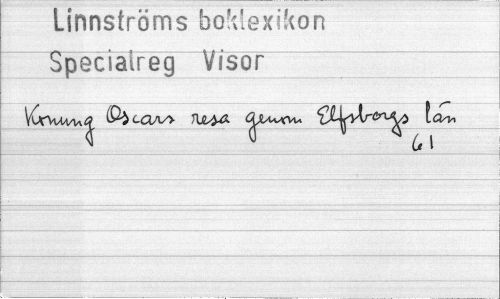 Linnströms boklexikon
Specialreg Visor
Konung Oscars resa genom Elfsborgs län
61